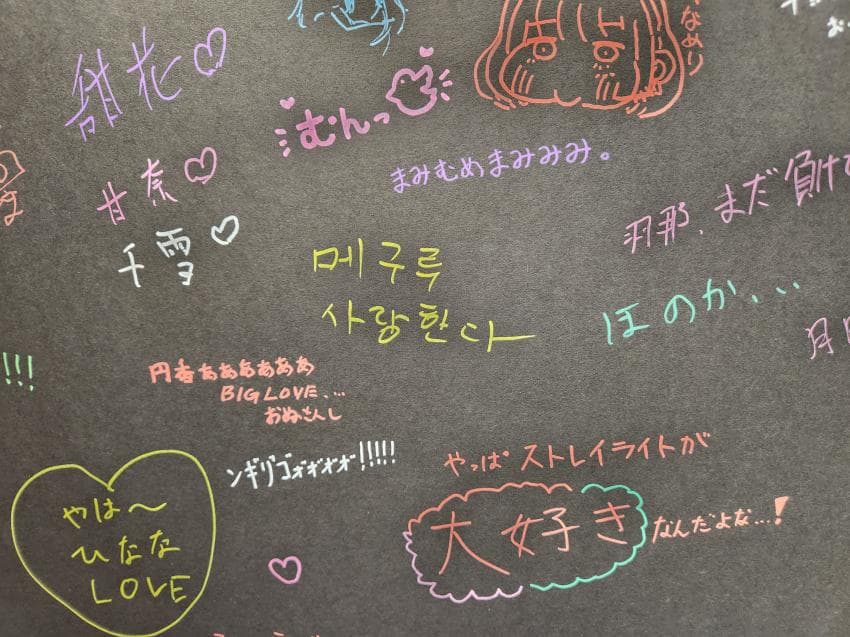 なめり
甜花
むんっ
甘奈
まみむめまみみみ。
千雪
羽那、まだ負け
메구루
사랑한다
ほのか...
!!!
円香ああああああ
BIG LOVE....
おぬさんし
ンギリゴォォォォ!!!!!
やっぱストレイライトが
大好き
なんだよな...!
やは〜
ひなな
LOVE